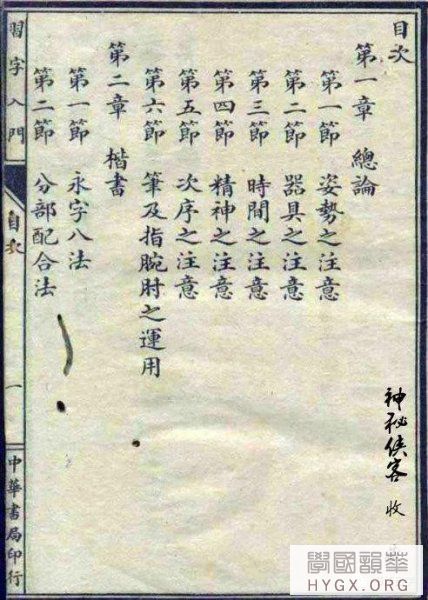 目次
第一章　總論
第一節　姿勢之注意
第二節　器具之注意
第三節　時間之注意
第四節　精神之注意
第五節　次序之注意
第六節　筆及指腕肘之運用
第二章　楷書
第一節　永字八法
第二節　分部配合法
習字入門
目次
一
中華書局印行
神秘俠客 收
學國韻華
HYGX.ORG